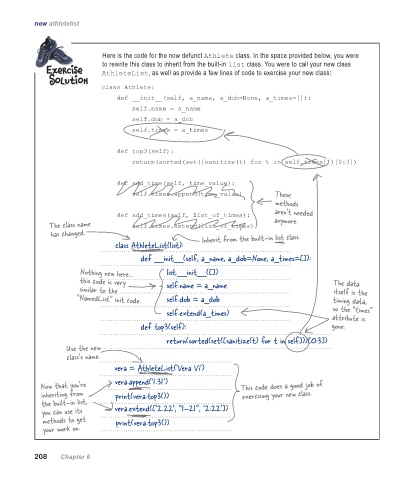 new athletelist
Exercise
Solution
Here is the code for the now defunct Athlete class. In the space provided below, you were
to rewrite this class to inherit from the built-in list class. You were to call your new class
AthleteList, as well as provide a few lines of code to exercise your new class:
class Athlete:
def __init__(self, a_name, a_dob=None, a_times=[]):
self.name = a_name
self.dob = a_dob
self.times = a_times
def top3(self):
return(sorted(set([sanitize(t) for t in self.times]))[0:3])
def add_time(self, time_value):
self.times.append(time_value)
def add_times(self, list_of_times):
self.times.extend(list_of_times)
These
methods
aren't needed
anymore.
The class name
has changed.
Inherit from the built-in list class.
class AthleteList(list):
def __init__(self, a_name, a_dob=None, a_times=[]):
Nothing new here...
this code is very
similar to the
"NamedList" init code.
list.__init__([])
self.name = a_name
self.dob = a_dob
self.extend(a_times)
The data
itself is the
timing data,
so the "times"
attribute is
gone.
def top3(self):
return(sorted(set([sanitize(t) for t in self]))[0:3])
Use the new
class's name.
vera = AthleteList('Vera Vi')
vera.append('1.31')
print(vera.top3())
vera.extend(['2.22', "1-21", '2:22'])
print(vera.top3())
Now that you're
inheriting from
the built-in list,
you can use its
methods to get
your work on.
This code does a good job of
exercising your new class.
208 Chapter 6